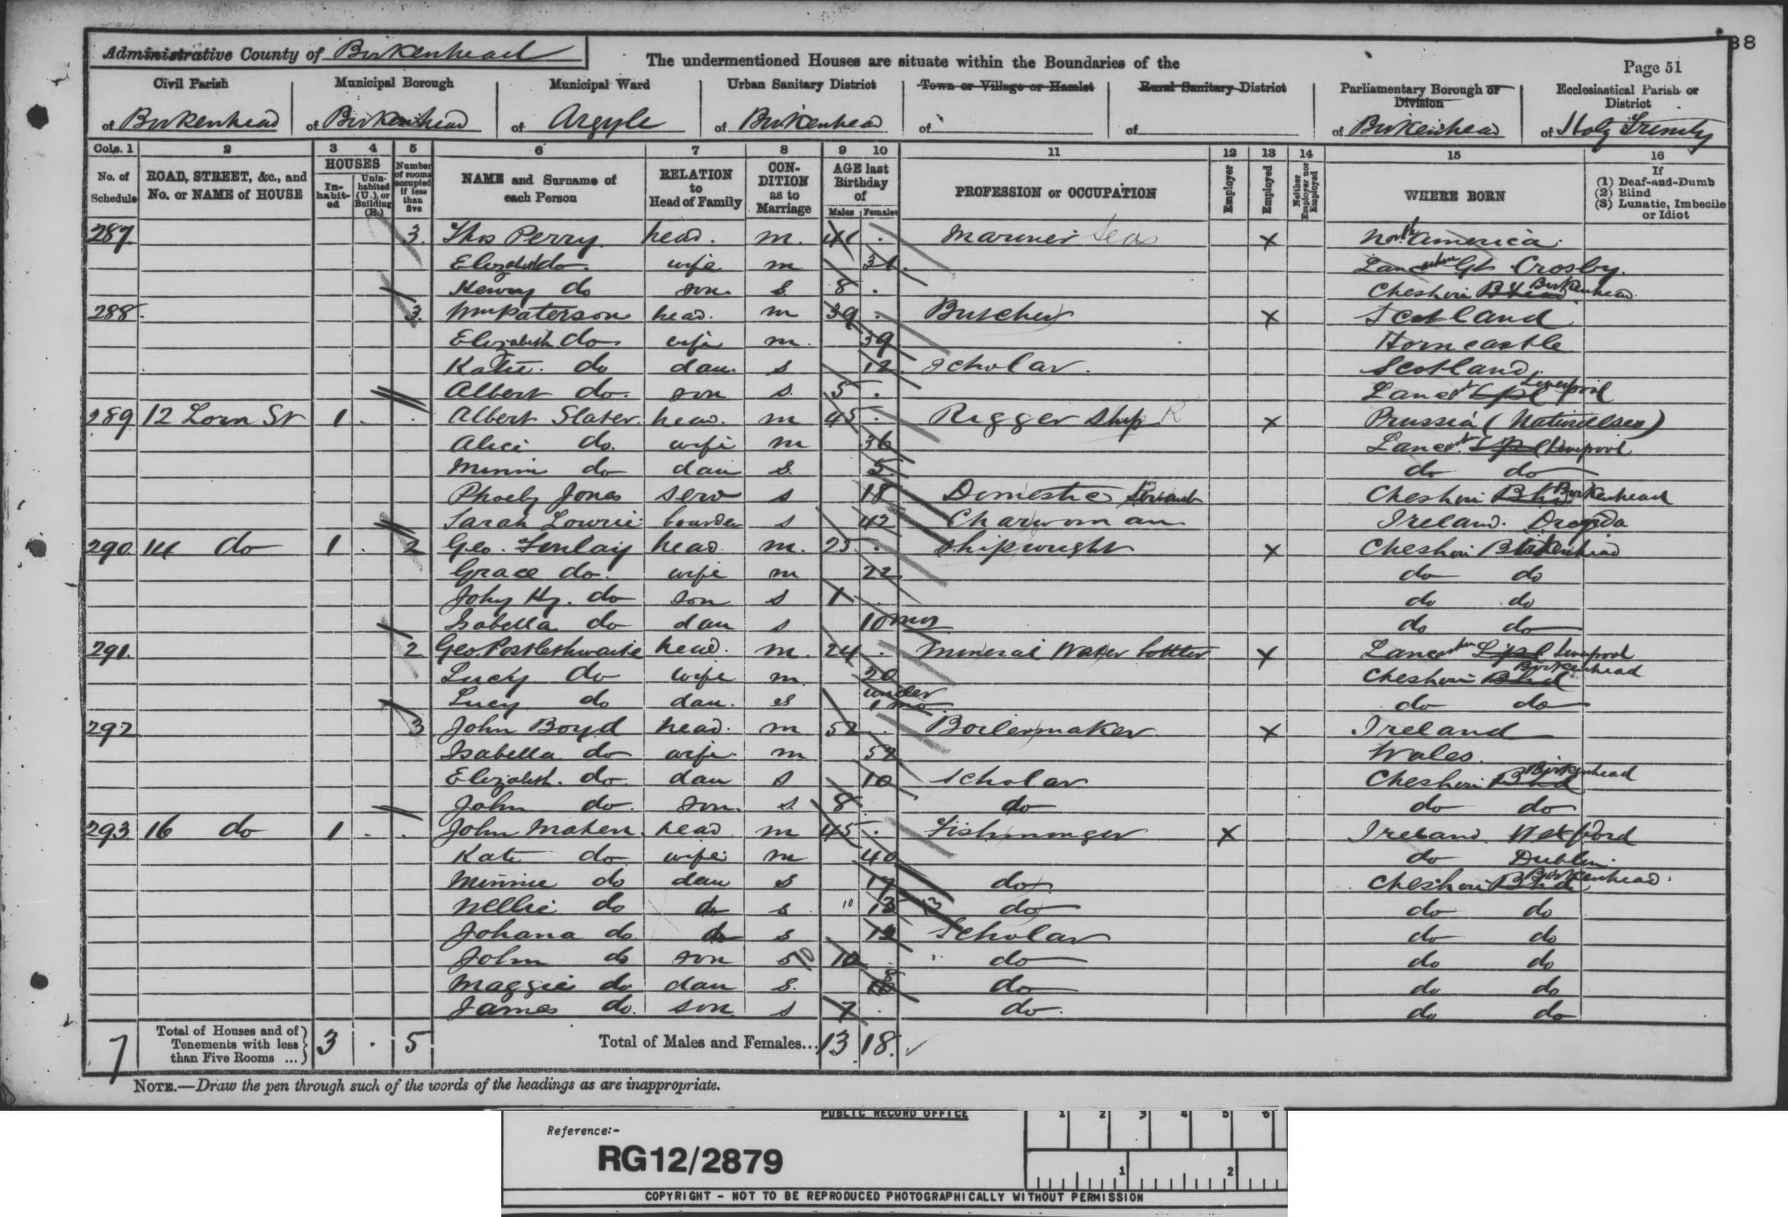 38
Administrative County of Birkenhead
The undermentioned Houses are situate within the Boundaries of the
Page 51
Civil Parish Municipal Borough Municipal Ward Urban Sanitary District Town or Village or Hamlet Rural Sanitary District Parliamentary Borough or Division Ecclesiastical Parish or District
of Birkenhead of Birkenhead of Argyle of Birkenhead of of of Birkenhead of Holy Trinity
Cols. 1 2 3 4 5 6 7 8 9 10 11 12 13 14 15 16
No. of Schedule ROAD, STREET, &c., and No. or NAME of HOUSE HOUSES Inhabited Uninhabited (U.), or Building (B.) Number of rooms occupied if less than five NAME and Surname of each Person RELATION to Head of Family CONDITION as to Marriage AGE last Birthday of Males Females PROFESSION or OCCUPATION Employer Employed Neither Employer nor Employed WHERE BORN If (1) Deaf-and-Dumb (2) Blind (3) Lunatic, Imbecile or Idiot
287 3 Thos Perry head m 41 Mariner Seas x North America
Elizabeth do wife m 31 Lancashire Gt Crosby
Henry do son s 8 Cheshire Bhead Birkenhead
288 3 Wm Paterson head m 39 Butcher x Scotland
Elizabeth do wife m 39 Horncastle
Katie do dau s 12 Scholar Scotland
Albert do son s 5 Lancr Lpl Liverpool
289 12 Lorn St 1 Albert Slater head m 45 Rigger Ship R x Prussia
Alice do wife m 36 Lancr Lpl Liverpool
Minnie do dau s 5 do do
Phoeby Jones serv s 18 Domestic Servant Cheshire Bhd Birkenhead
Sarah Lowrie boarder s 42 Charwoman Ireland
290 14 do 1 2 Geo. Finlay head m 25 Shipwright x Cheshire Birkenhead
Grace do wife m 22 do do
John Hy. do son s 1 do do
Isabella do dau s 10 mos do do
291 2 Geo Postlethwaite head m 24 Mineral Water bottler x Lancr Lpl Liverpool
Lucy do wife m 20 Cheshire Bhd Birkenhead
Lucy do dau s under 1 mo do do
292 3 John Boyd head m 52 Boilermaker x Ireland
Isabella do wife m 52 Wales
Elizabeth do dau s 10 Scholar Cheshire Bhd Birkenhead
John do son s 8 do do do
293 16 do 1 John Maken head m 45 Fishmonger x Ireland Wexford
Kate do wife m 40 do Dublin
Minnie do dau s 17 do Cheshire Bhd Birkenhead
Nellie do do s 13 do do do
Johana do do s 12 Scholar do do
John do son s 10 do do do
Maggie do dau s do do do
James do son s 7 do do do
7 Total of Houses and of Tenements with less than Five Rooms ... 3 5 Total of Males and Females... 13 18
NOTE.—Draw the pen through such of the words of the headings as are inappropriate.
PUBLIC RECORD OFFICE
1 2 3 4 5 6
Reference:-
RG12/2879
1 2
COPYRIGHT - NOT TO BE REPRODUCED PHOTOGRAPHICALLY WITHOUT PERMISSION